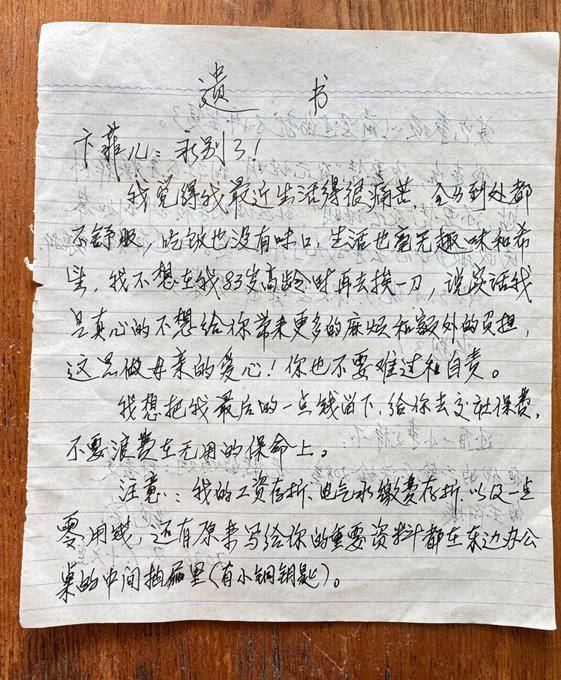 遗书
卞菲儿：永别了！
我觉得我最近生活得很痛苦，全身到处都
不舒服，吃饭也没有味口，生活也毫无趣味和希
望，我不想在我83岁高龄时再去挨一刀，说实话我
是真心的不想给你带来更多的麻烦和额外的负担，
这是做母亲的爱心！你也不要难过和自责。
我想把我最后的一点钱留下，给你去交社保费，
不要浪费在无用的保命上。
注意：：我的工资存折、电气水缴费存折以及一点
零用钱，还有原来写给你的重要资料都在东边办公
桌的中间抽屉里(有小铜钥匙)。